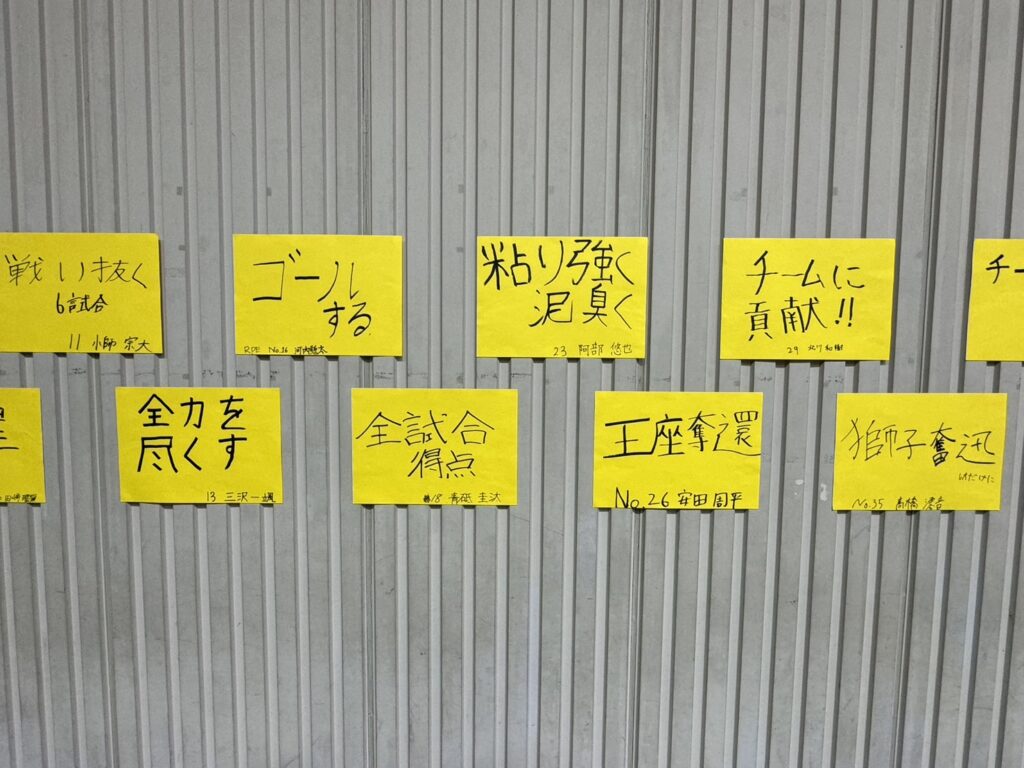 戦い抜く
6試合
11 小師 宗大
ゴール
する
RDE No.16
粘り強く
泥臭く
23 阿部 悠也
チームに
貢献!!
29
チー
全力を
尽くす
13 三沢 一颯
全試合
得点
#18 青砥 圭汰
王座奪還
No.26 安田 周平
獅子奮迅
No.35 高橋